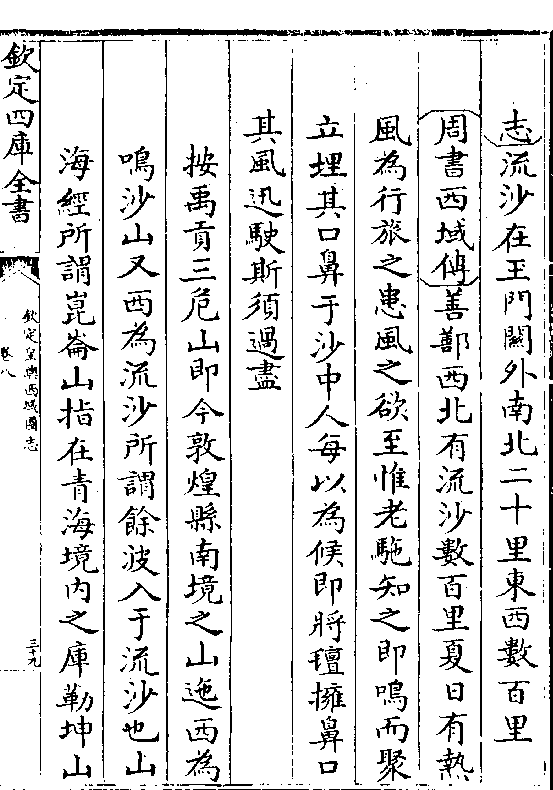 志流沙在玉門關外南北二十里東西數百里
周書西域傳善鄯西北有流沙數百里夏日有熱
風為行旅之患風之欲至惟老駞知之即鳴而聚
立埋其口鼻于沙中人每以為候即將氊擁鼻口
其風迅駛斯須過盡
按禹貢三危山即今敦煌縣南境之山迤西為
鳴沙山又西為流沙所謂餘波入于流沙也山
海經所謂崑崙山指在青海境内之庫勒坤山
欽定四庫全書
欽定皇輿西域圖志
卷八
三十九